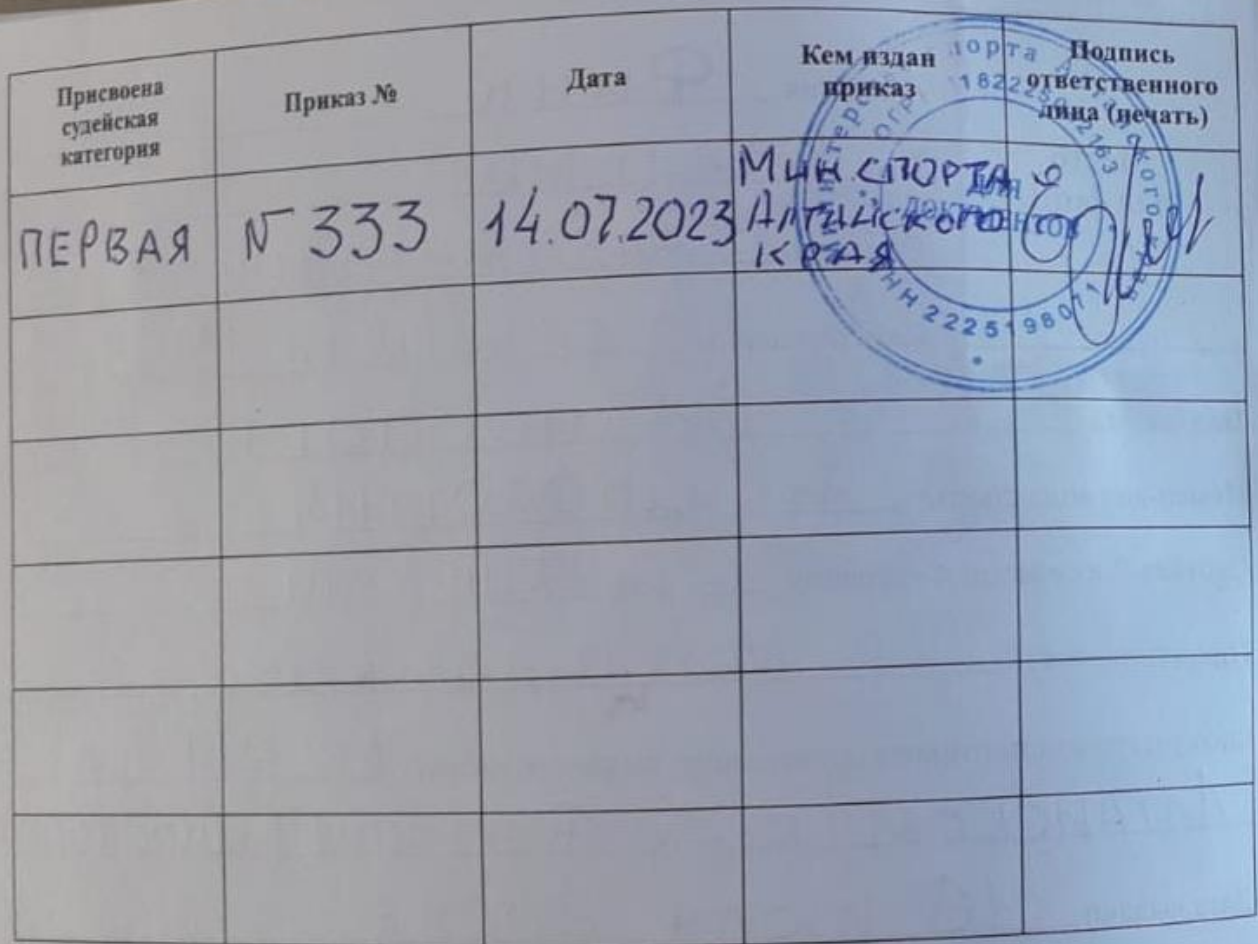 Присвоена
судейская
категория
Приказ №
Дата
Кем издан
приказ
Подпись
ответственного
лица (печать)
ПЕРВАЯ
N 333
14.07.2023
МИН. СПОРТА
АЛТАЙСКОГО
КРАЯ
ДЛЯ
ДОКУМЕНТОВ
ИНН 2225198071